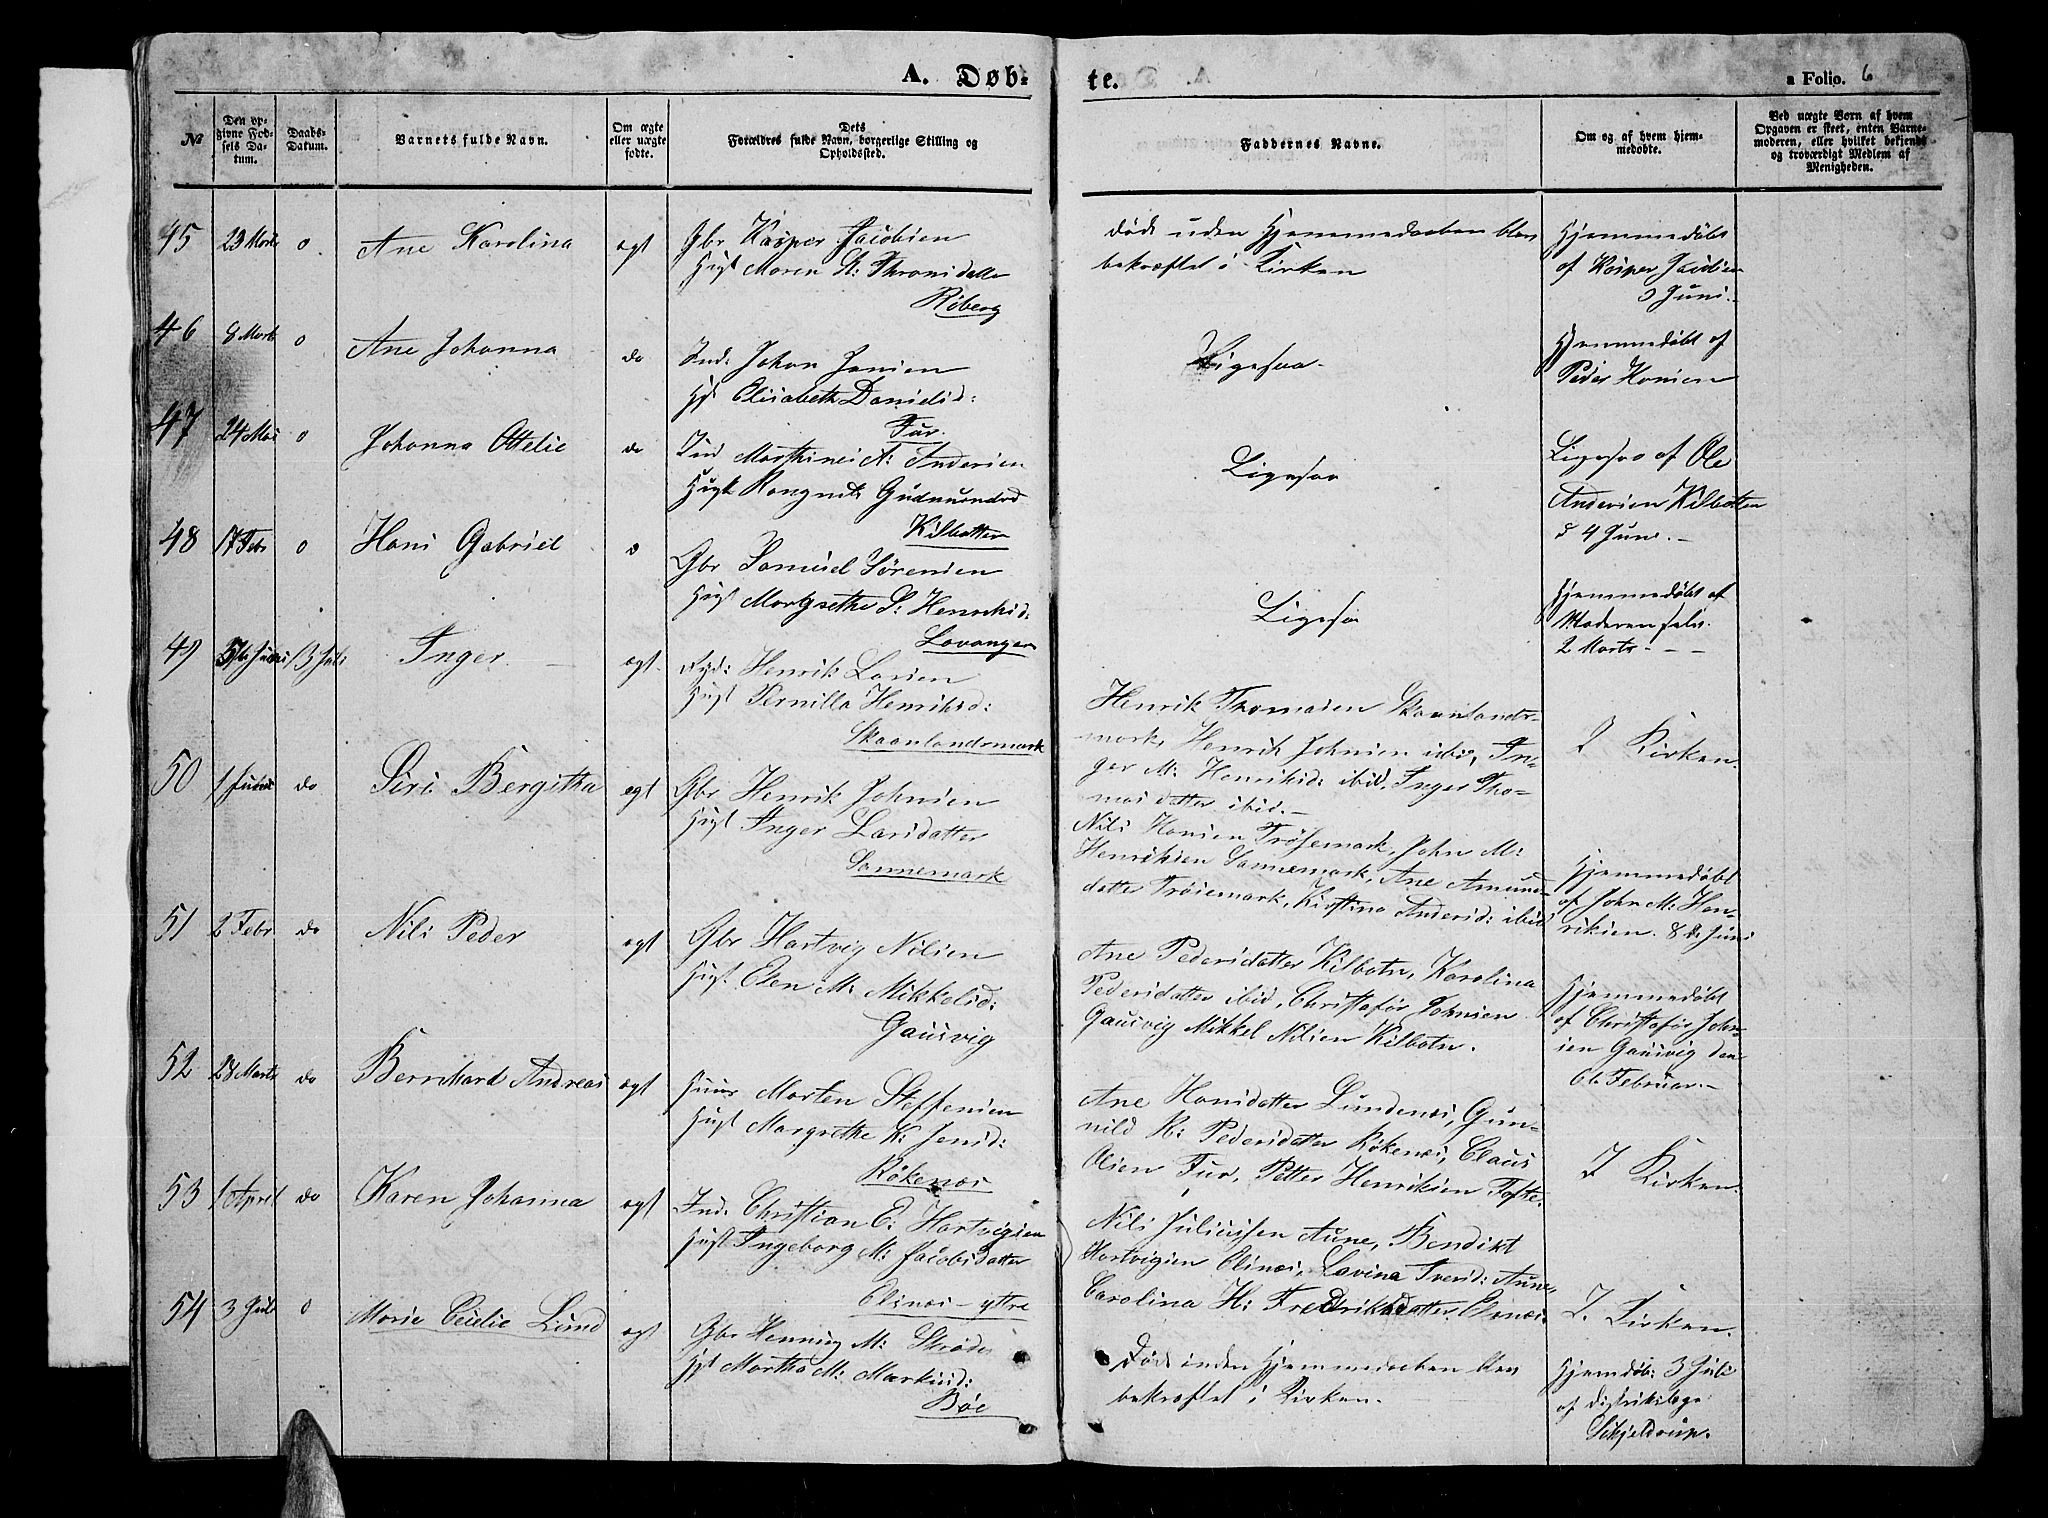 A. Døb-
te.
a Folio. 6
№
Den op-
givne Fød-
sels Da-
tum.
Daabs-
Datum.
Barnets fulde Navn.
Om ægte
eller uægte
fødte.
Dets
Forældres fulde Navn, borgerlige Stilling og
Opholdssted.
Faddernes Navne.
Om og af hvem hjem-
medøbte.
Ved uægte Børn af hvem
Opgaven er skeet, enten Barne-
moderen, eller hvilket bekjendt
og troværdigt Medlem af
Menigheden.
45 23 Marts o Ane Karolina ægt Gbr Kasper Jacobsen
Hust Maren A: Thronsdatter
Røberg
døde uden Hjemmedaaben blev
bekræftet i Kirken
Hjemmedøbt
af Kasper Jacobsen
3 Juni.
46 8 Marts o Ane Johanna do Ind: Johan Jensen
Hst Elisabeth Danielsd:
Fur.
Ligesaa.
Hjemmedøbt af
Peder Hansen
47 24 Mai o Johanna Ottelie do Ind Marthines A: Andersen
Hust Rangnele Gudmundsd
Kilbotten
Ligesaa
Ligesaa af Ole
Andersen Kilbotten
d 4 Juni. -
48 17 Febr o Hans Gabriel o Gbr Samuel Sørensen
Hust Margrethe S: Henriksd:
Lovanger
Ligesaa
Hjemmedøbt af
Moderen selv.
2 Marts - - -
49 Juni 13 Juli Inger. - ægt. Ryd: Henrik Larsen
Hust Pernilla Henriksd:
Skaanlandsmark
Henrik Thomasen Skaanlands-
mark, Henrik Johnsen ibid, In-
ger M: Henriksd: ibid, Inger Tho-
masdatter ibid. -
I Kirken.
50 1 Juni do Siri Bergitha ægt Gbr Henrik Johnsen
Hust Inger Larsdatter
Sannemark
Nils Hansen Trøsemark, John M:
Henriksen Sannemark, Ane Amund-
datter Trøsemark, Kirstina Andersd: ibid
Hjemmedøbt
af John M: Hen-
riksen. 8 de Juni
51 2 Febr do Nils Peder ægt Gbr Hartvig Nilsen
Hust. Elen M: Mikkelsd:
Gausvig
Ane Pedersdatter Kilbotn, Karolina
Pedersdatter ibid, Christofør Johnsen
Gausvig Mikkel Nilsen Kilbotn.
Hjemmedøbt
af Christofør John-
sen Gausvig den
6te Februar. -
52 28 Marts do Bernhard Andreas ægt Huus Morten Steffensen
Hust Margrethe K: Jensd:
Røkenæs
Ane Hansdatter Lundenæs, Gun-
nild R: Pedersdatter Røkenæs, Claus
Olsen Fur, Petter Henriksen Tofte.
I Kirken.
53 1 April do Karen Johanna ægt Ind. Christian E: Hartvigsen
Hust Ingeborg M: Jacobsdatter
Elsnæs - yttre
Nils Juliussen Aune, Bendikt
Hartvigsen Elsnæs, Lavina Iversd: Aune,
Carolina H: Fredriksdatter Elsnæs.
I Kirken.
54 3 Juli o Marie Cecilie Lund ægt Gbr Henning M: Skrøder
Hst Martha M: Markusd:
Bøe
Døde inden Hjemmedaaben blev
bekræftet i Kirken.
Hjemdøbt 3 Juli
af Distrikslæge
Schjeldrup.